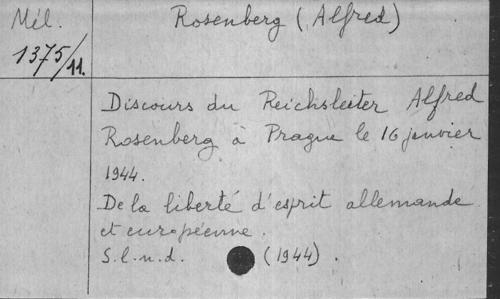 Mél.
1375/11.
Rosenberg (Alfred)
Discours du Reichsleiter Alfred
Rosenberg à Prague le 16 janvier
1944.
De la liberté d'esprit allemande
et européenne.
S.l.n.d. (1944).